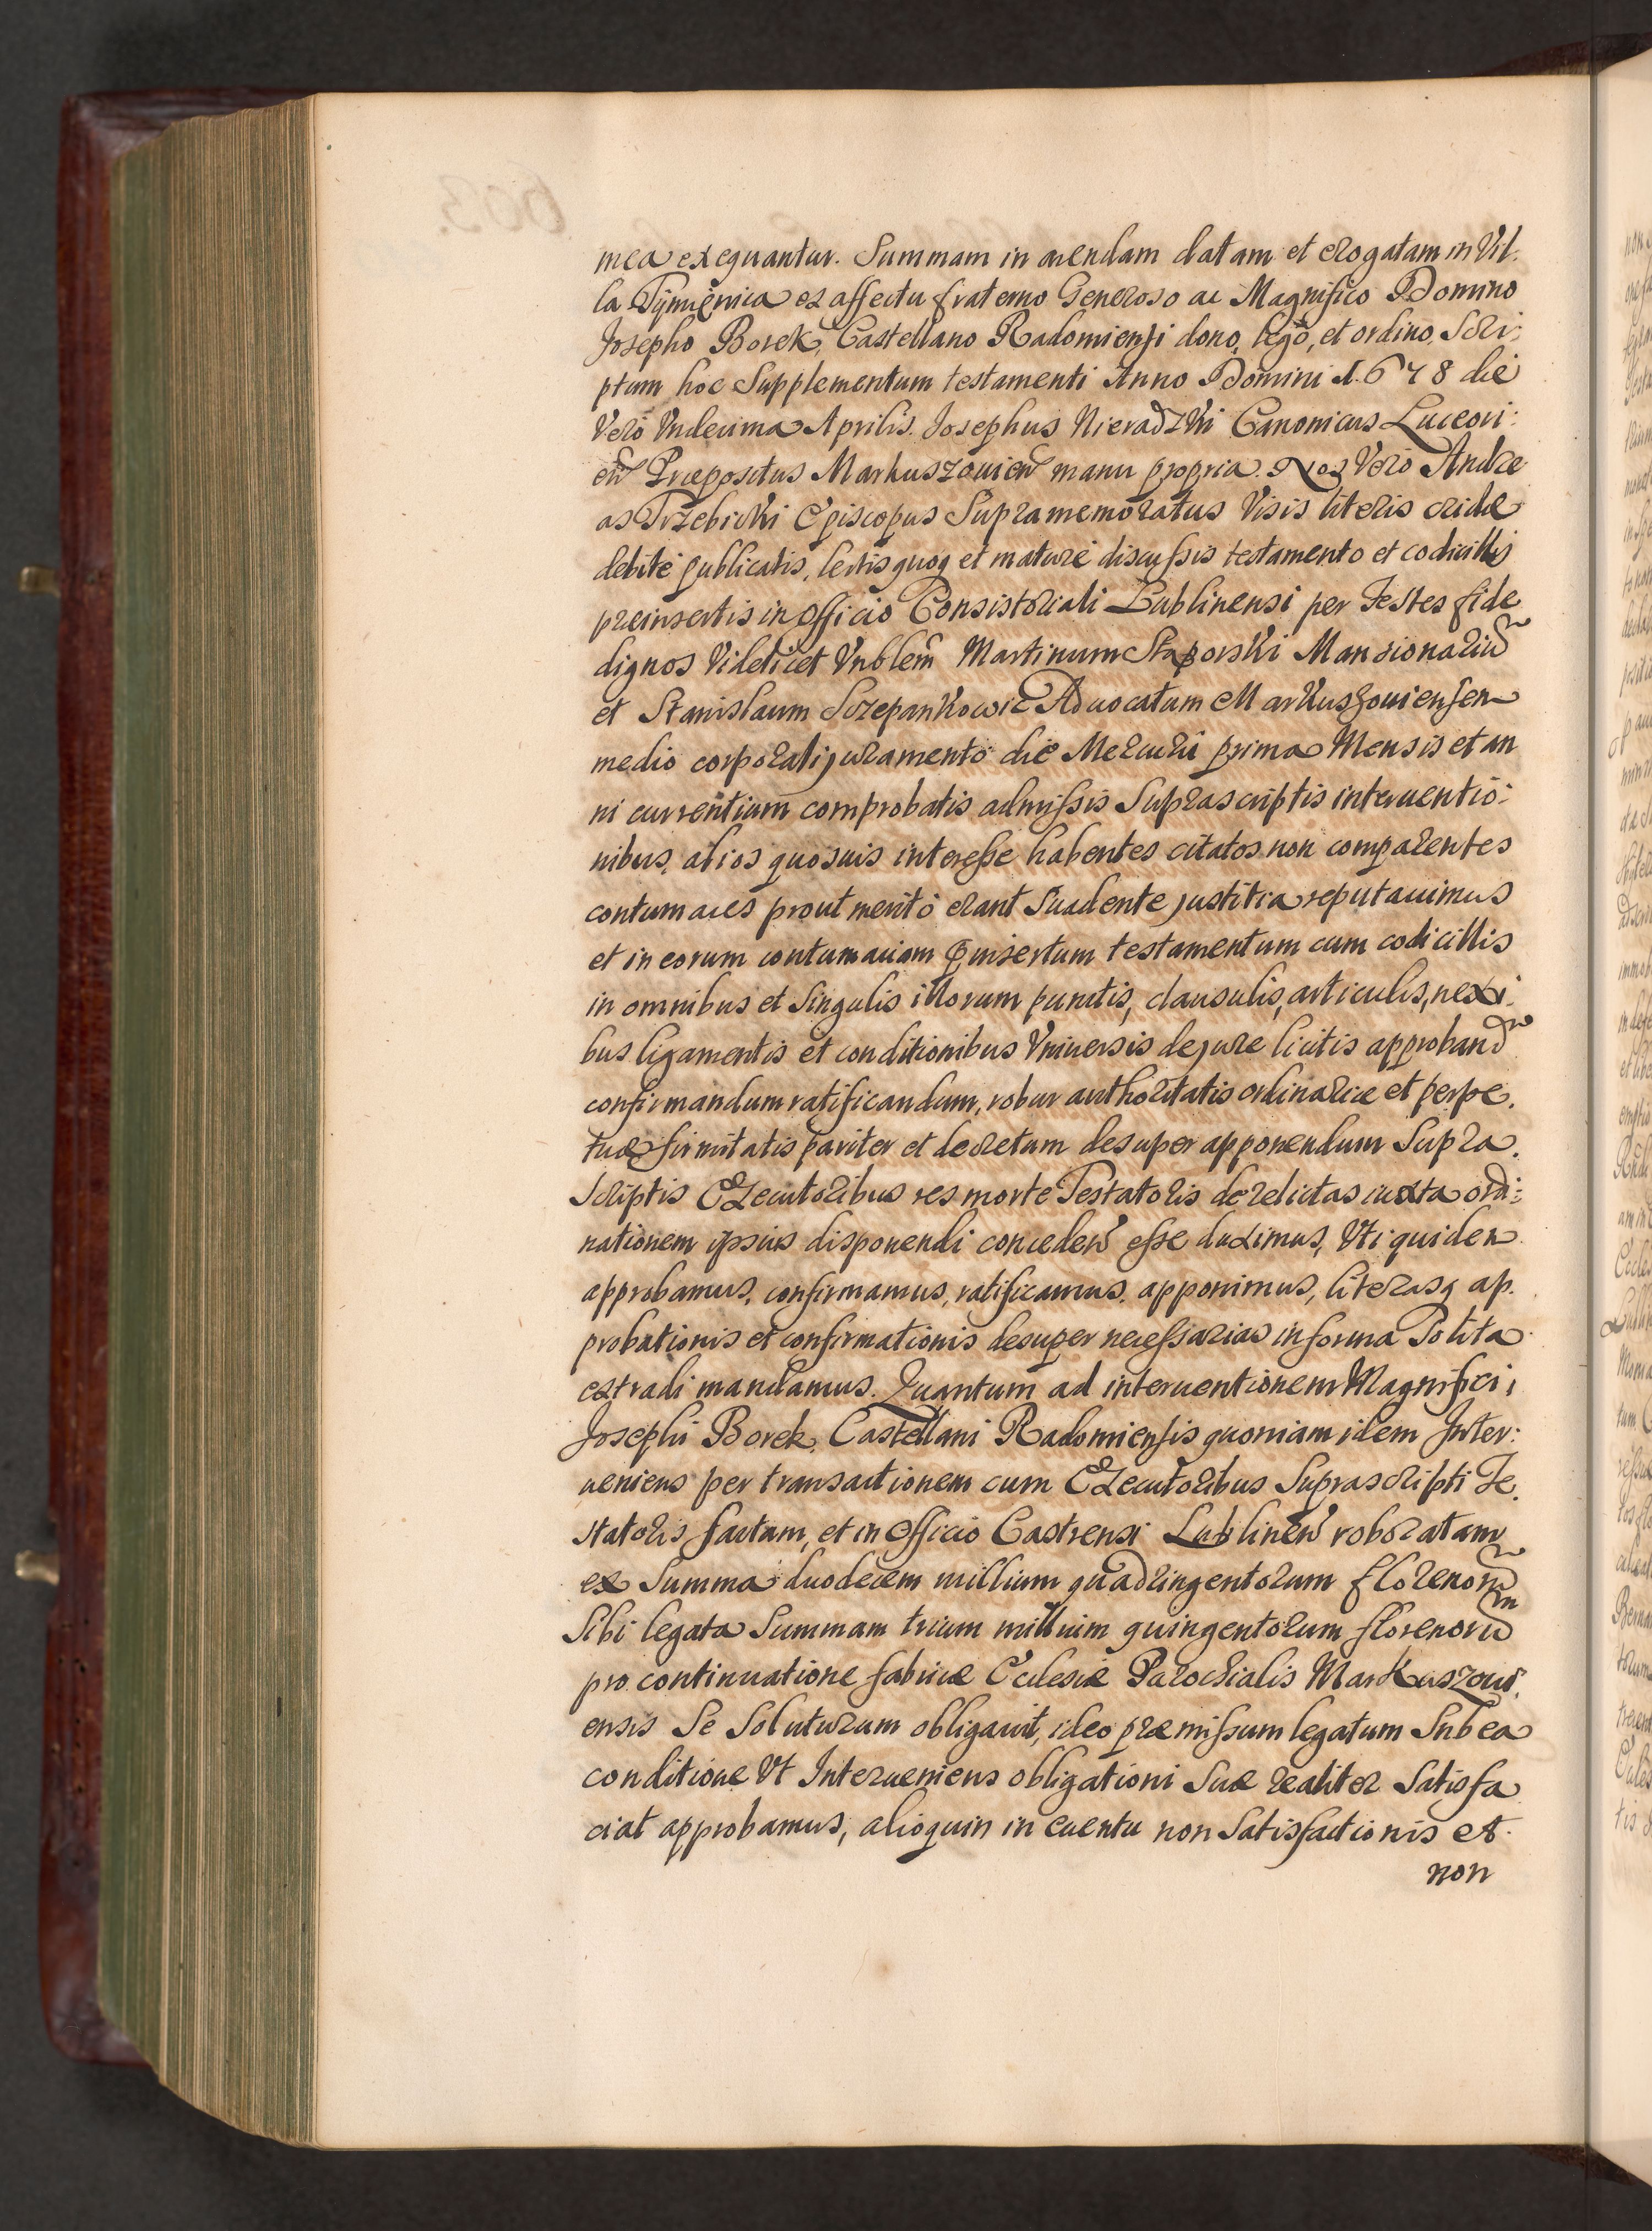 mea exequantur. Summam in arendam datam et erogatam in Vil.
la Tymienica ex affectu fraterno Generoso ac Magnifico Domino
Josepho Borek, Castellano Radomiensi dono, lego, et ordino, Scri:
ptum hoc Supplementum testamenti Anno Domini 1.678 die
Verò Vndecima Aprilis. Josephus Nieradzki Canonicus Luceori:
eñ Præpositus Markuszouieñ manu propria. Nos Verò Andre
as Trzebicki Episcopus Supramemoratus Visis literis cridæ
debitè publicatis, lectis quoq et maturè discussis testamento et codicillis
preinsertis in officio Consistoriali Lublinensi per Testes fide
dignos Videlicet Vnblem̃ Martinum Staporski Mansionariũ
et Stanislaum Szczepankowic Aduocatum Markuszouiensem
medio corporali juramento die Mercurii prima Mensis et an
ni currentium comprobatis admissis Suprascriptis interuentio:
nibus, alios quosuis interesse habentes citatos non comparentes
contumaces prout meritò erant Suadente justitia reputauimus
et in eorum contumaciam pinsertum testamentum cum codicillis
in omnibus et Singulis illorum punctis, clausulis, articulis, nexi:
bus ligamentis et conditionibus Vniuersis de jure licitis approband
confirmandum ratificandum, robur authoritatis ordinariæ et perpe.
tuæ firmitatis pariter et decretum desuper apponendum Supra.
Scriptis Executoribus res morte Testatoris derelictas iuxta ordi:
nationem ipsius disponendi concedeñ esse duximus, Vti quidem
approbamus, confirmamus, ratificamus, apponimus, literasq ap.
probationis et confirmationis desuper necessarias in forma Solita
extradi mandamus. Quantum ad interuentionem Magnifici
Josephi Borek, Castellani Radomiensis quoniam idem Inter:
ueniens per transactionem cum Executoribus Suprascripti Te.
statoris factam, et in officio Castrensi Lublineñ roboratam
ex Summa duodecem millium quadringentorum florenorũ
Sibi legata Summam trium millium quingentorum florenorũ
pro continuatione fabricæ Ecclesiæ Parochialis Markuszoui.
ensis Se Soluturum obligauit, ideo præmissum legatum Sub ea
conditione Vt Interueniens obligationi Suæ realiter Satisfa
ciat approbamus, alioquin in euentu non Satisfactionis et
non